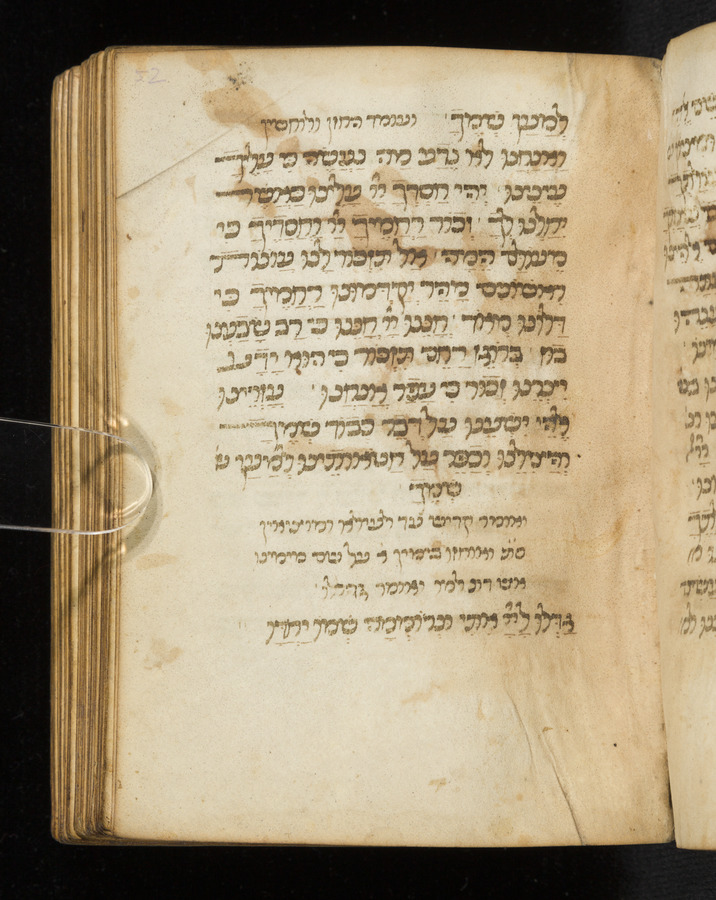 למען שמך ועומד החזן ולוחסין
ואנחנו לא נדע מה נעשה כי עליך
עינינו יהי חסדך יי עלינו כאשר
יחלנו לך זכור רחמיך יי וחסדיך כי
מעולם המה אל תזכור לנו עונות
ראשונים מהר יקדמונו רחמיך כי
דלונו מאד חננו יי חננו כי רב שבענו
בוז ברוגז רחם תזכור כי הוא ידע
יצרנו זכור כי עפר אנחנו עזרינו
אלהי ישענו על דבר כבוד שמך
והצילנו וכפר על חטאותינו למען
שמך
ואומר קדיש עד לעילא
ואוחזו בימין על שם
ואומר גדלו
גדלו ליי אתי ונרוממה שמו יחדיו